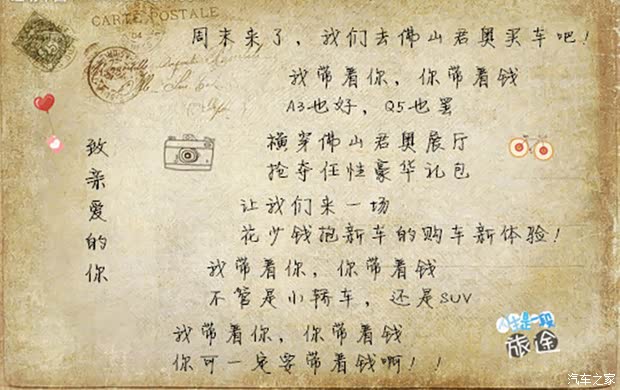 CARTE POSTALE
周末来了，我们去佛山君奥买车吧！
我带着你，你带着钱
A3也好，Q5也罢
横穿佛山君奥展厅
抢夺任性豪华礼包
让我们来一场
花少钱抱新车的购车新体验！
我带着你，你带着钱
不管是小轿车，还是SUV
我带着你，你带着钱
你可一定要带着钱啊！！
致亲爱的你
人生是一段
旅途
汽车之家